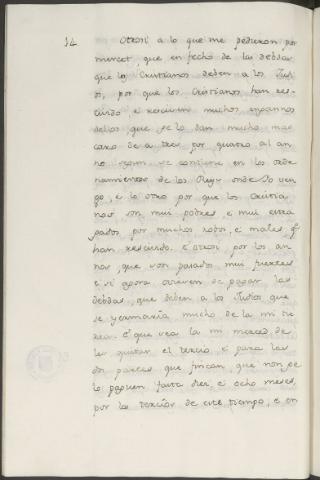 14 Otrosi a lo que me pedieron por
merced, que en fecho de las debdas
que los Cristianos deben a los Judi
os, por que los Cristianos han res
cevido e resciven muchos engannos
dellos que se lo dan mucho mas
caro de a tres por quatro al an
no segun se contiene en los orde
namientos de los Reyes onde Yo ven
go, e lo otro por que los Cristia
nos son mui pobres e mui estra
gados por muchos robos, e males q̃
han rescevido. E otrosi por los an
nos, que son pasados mui fuertes
e si agora oviesen de pagar las
debdas, que deben a los Judios que
se yermaria mucho de la mi tie
rra. E que vea la mi merced de
les quitar el tercio, e para las
dos partes que fincan, que non ge
lo paguen fasta diez, e ocho meses,
por los tercios de este tiempo, e en